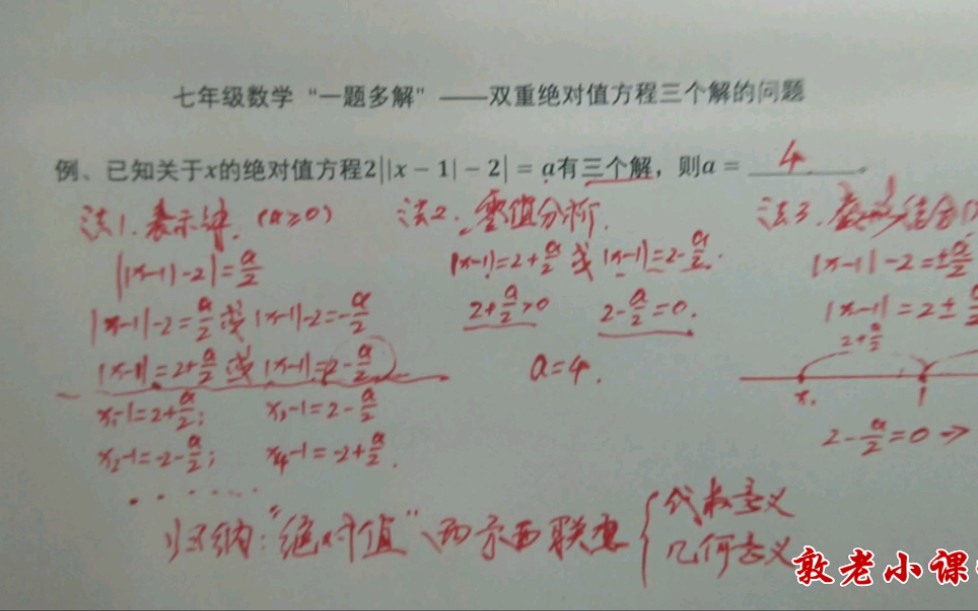 七年级数学“一题多解”——双重绝对值方程三个解的问题
例、已知关于x的绝对值方程2||x-1|-2|=a有三个解，则a=4。
法1.表示钟.(a≥0)
||x-1|-2|=a/2
|x-1|-2=a/2或|x-1|-2=-a/2
|x-1|=2+a/2或|x-1|=2-a/2
x₁-1=2+a/2; x₃-1=2-a/2
x₂-1=-2-a/2; x₄-1=-2+a/2.
......
法2.零值分析.
|x-1|=2+a/2或|x-1|=2-a/2.
2+a/2>0 2-a/2=0.
a=4.
法3.数形结合
|x-1|-2=±a/2
|x-1|=2±
2+a/2
x₁ 1
2-a/2=0→
归纳:“绝对值”两方面联想
代数意义
几何意义
敦老小课